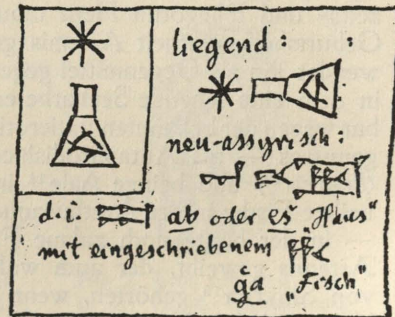 liegend:
neu-assyrisch:
d.i. ab oder eš „Haus"
mit eingeschriebenem
ğa „Fisch"